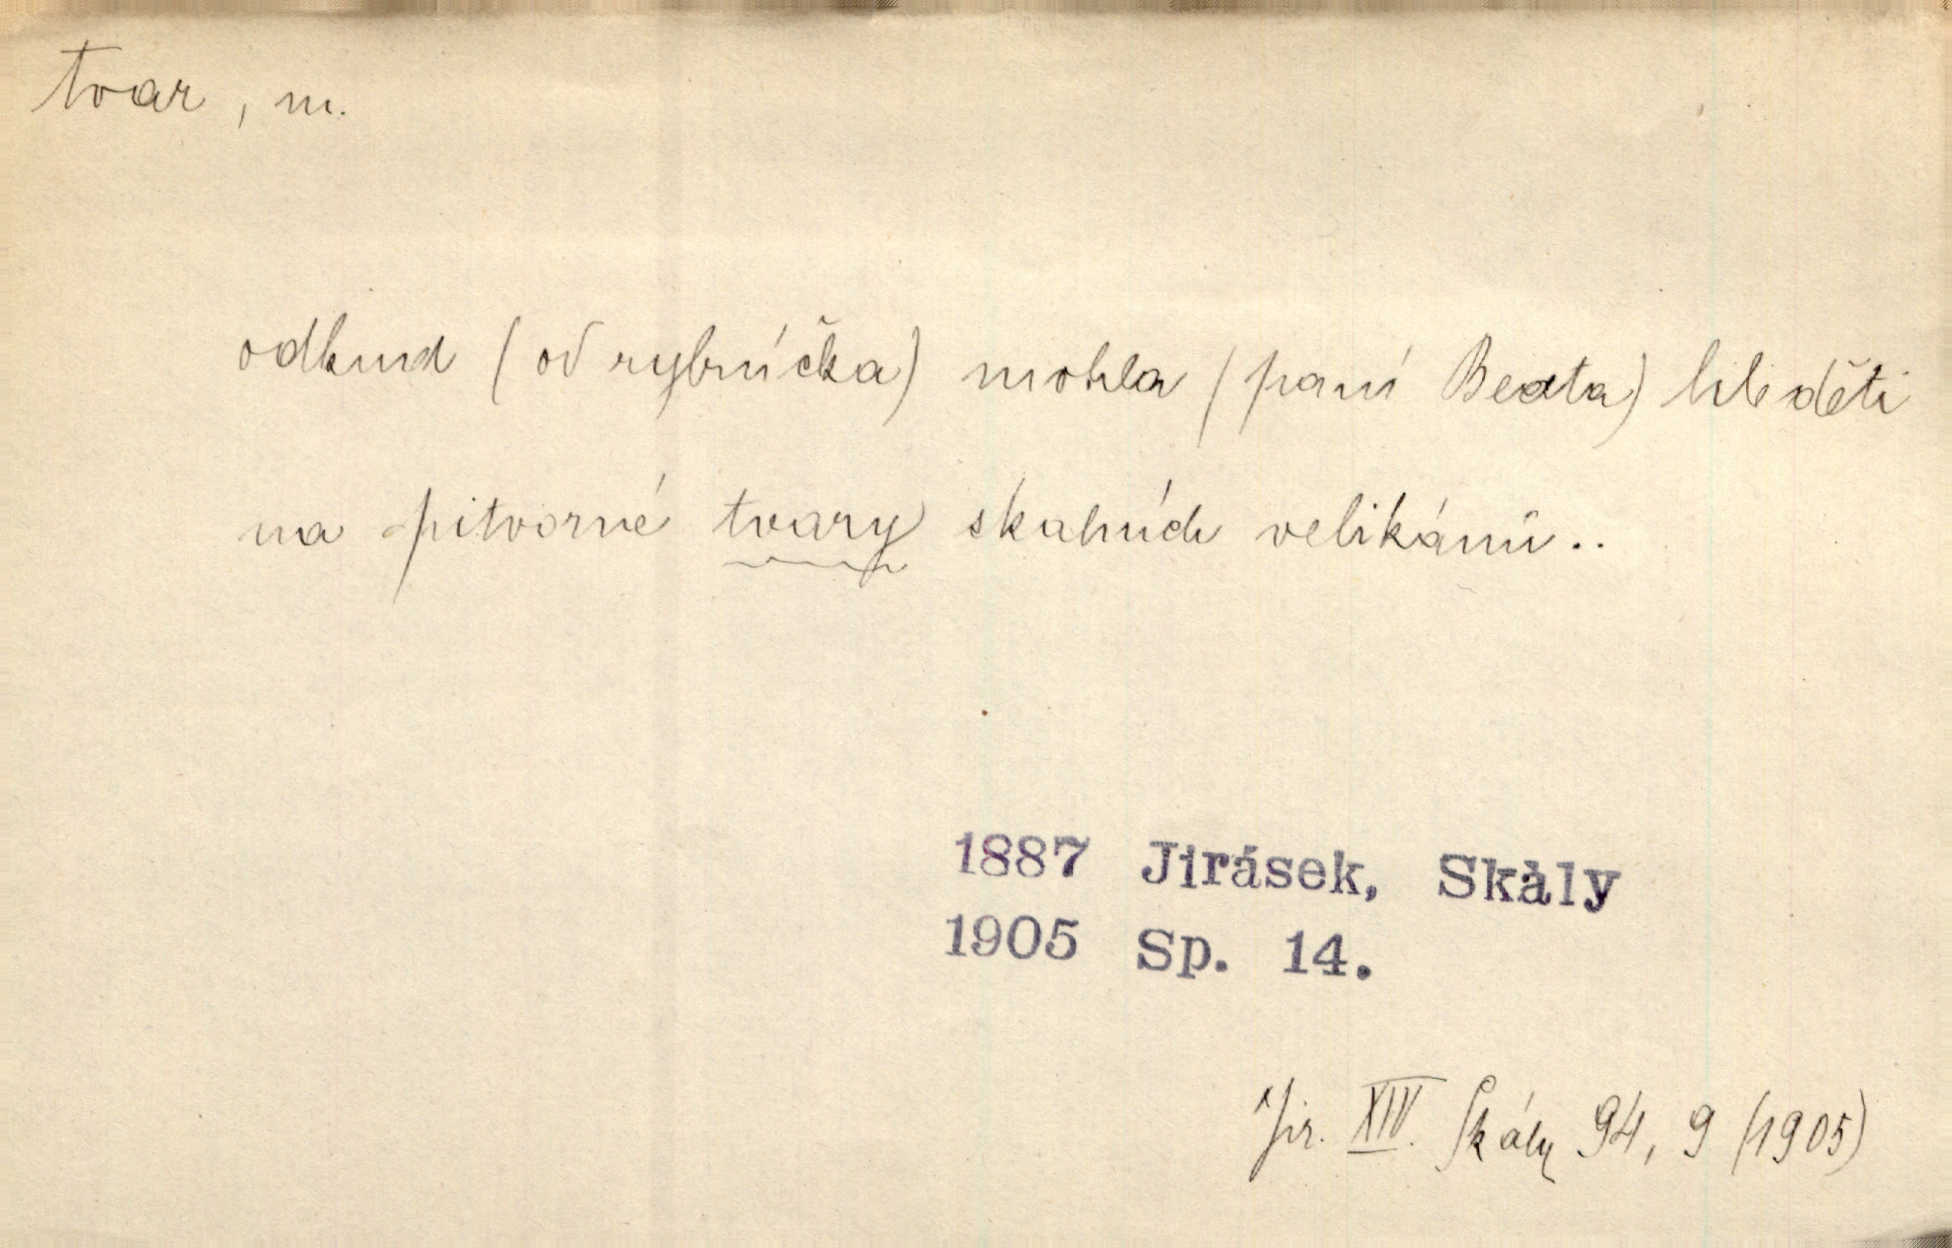 tvar, m.
odkud (od rybníčka) mohla (paní Beata) hleděti
na pitvorné tvary skalních velikánů..
1887 Jirásek, Skály
1905 Sp. 14.
Jir. XIV. Skály 94, 9 (1905)